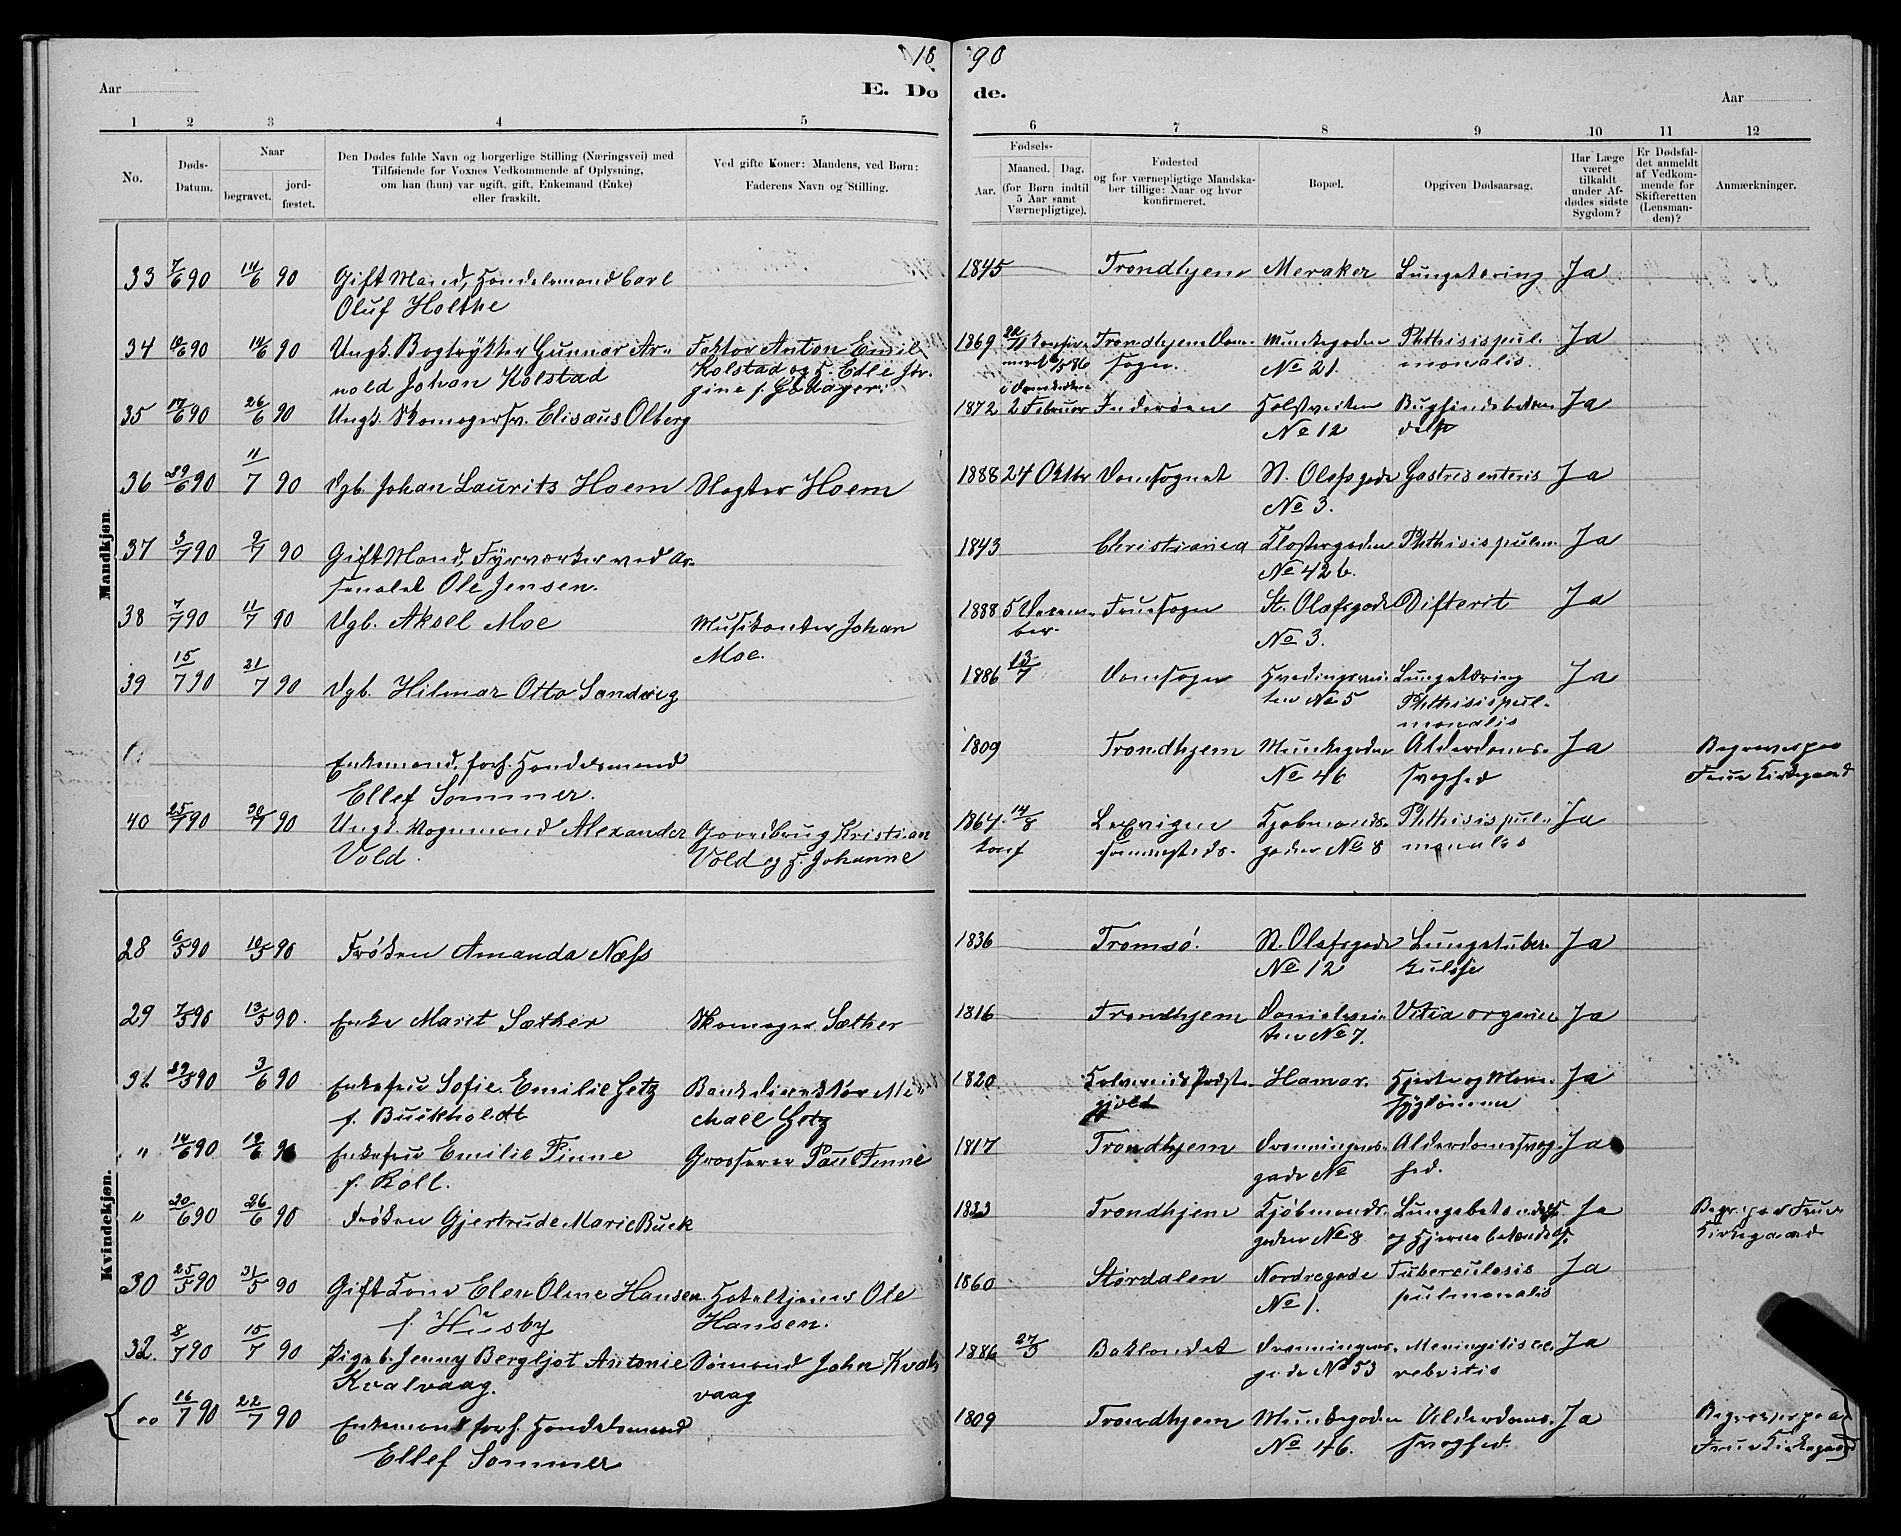 18 90
Aar
E. Dø de.
Aar
1 2 3 4 5 6 7 8 9 10 11 12
No.
Døds-Datum.
Naar
begravet.
jord-fæstet.
Den Dødes fulde Navn og borgerlige Stilling (Næringsvei) med
Tilføiende for Voxnes Vedkommende af Oplysning,
om han (hun) var ugift, gift, Enkemand (Enke)
eller fraskilt.
Ved gifte Koner: Mandens, ved Børn:
Faderens Navn og Stilling.
Fødsels-
Aar.
Maaned. Dag.
(for Børn indtil
5 Aar samt
Værnepligtige).
Fødested
og for værnepligtige Mandska-
ber tillige: Naar og hvor
konfirmeret.
Bopæl.
Opgiven Dødsaarsag.
Har Læge
været
tilkaldt
under Af-
dødes sidste
Sygdom?
Er Dødsfal-
det anmeldt
af Vedkom-
mende for
Skifteretten
(Lensman-
den)?
Anmærkninger.
Mandkjøn
33 7/6 90 14/6 90 Gift Mand, Handelsmand Carl 1845 Trondhjem Meraker Lungetæring Ja
Oluf Holthe
34 10/6 90 14/6 90 Ungk. Bogtrykker Gunnar Ar- Faktor Anton Emil 1869 Trondhjem Dom- Munkegaden Phthisis pul- Ja
nold Johan Kolstad Kolstad og H. Edle Jør- sogn. No 21. monalis.
gine f.
35 17/6 90 26/6 90 Ungk. Skomagersv. Elisæus Olberg 1872 2 Februar Inderøen No 12 Ja
36 29/6 90 11/7 90 Dgb. Johan Laurits Hoem Slagter Hoem 1888 24 Oktbr Domsognet St. Olafsgade Gastres enteris Ja
No 3.
37 3/7 90 9/7 90 Gift Mand, Fyrværker ved Ar- 1843 Christiania Klostergaden Phthisis pulm. Ja
senalet Ole Jensen. No 42 b.
38 7/7 90 11/7 90 Dgb. Aksel Moe Musikanter Johan 1888 5 Decem- Fruesogn St. Olafsgade Difterit Ja
Moe. ber. No 3.
39 15/7 90 21/7 90 Dgb. Hilmar Otto Sandberg 1886 13/7 Domsogn Lungetæring Ja
No 5 Phthisis pul-
monalis
Enkemand, forh. Handelsmand 1809 Trondhjem Munkegaden Alderdoms- Ja Begraves paa
Ellef Sommer. No 46 svaghed Frue Kirkegaard
40 25/7 90 30/7 90 Ungk. Vognmand Alexander Gaardbrug Kristian 1864 14/8 Kjøbmands- Phthisis pul- Ja
Vold. Vold og H. Johanne konf gaden No 8 monales
Kvindekjøn.
28 6/5 90 10/5 90 Frøken Amanda Næss 1836 Tromsø. St. Olafsgade Lungetuber- Ja
No 12 kulose
29 7/5 90 13/5 90. Enke Marit Sæther Skomager Sæther 1816 Trondhjem Danielsvei- Vitia organic Ja
ten No 7.
31 29/5 90 3/6 90 Enkefru Sofie Emilie Getz Bankdirektør Mi- 1820 Kolvereids Præste- Hamar. Hjerte og Mave- Ja
f. Buckholdt chael Getz gjeld sygdomme
" 14/6 90 19/6 90 Enkefru Emilie Finne Grosserer Paul Finne 1817 Trondhjem Dronningens- Alderdomssvag- Ja
f. Roll. gade No hed.
" 20/6 90 26/6 90 Frøken Gjertrude Marie Buck 1833 Trondhjem Kjøbmands- Lungebetændelse Ja Begr. paa Frue
gaden No 8 og Hjernebetændels. Kirkegaard
30 25/5 90 31/5 90 Gift Kone Elen Oline Hansen Hoteltjener Ole 1860 Størdalen Nordregade Tuberculosis Ja
f. Husby Hansen. No 1. pulmonalis
32. 8/7 90 15/7 90 Pigeb. Jenny Bergljot Antonie Sømand Johan Kval- 1886 27/3 Baklandet Dronningens- Meningitis ce- Ja
Kvalvaag. vaag gade No 53 rebritis
16/7 90 22/7 90 Enkemand forh. Handelsmand 1809 Trondhjem Munkegaden Alderdoms- Ja Begraves paa
Ellef Sommer No 46. svaghed. Frue Kirkegaard